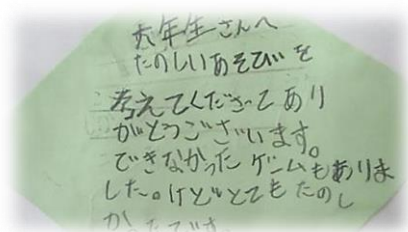 六年生さんへ
たのしいあそびを
考えてくださってあり
がとうございます。
できなかったゲームもありま
した。けどとてもたのし
かったです。